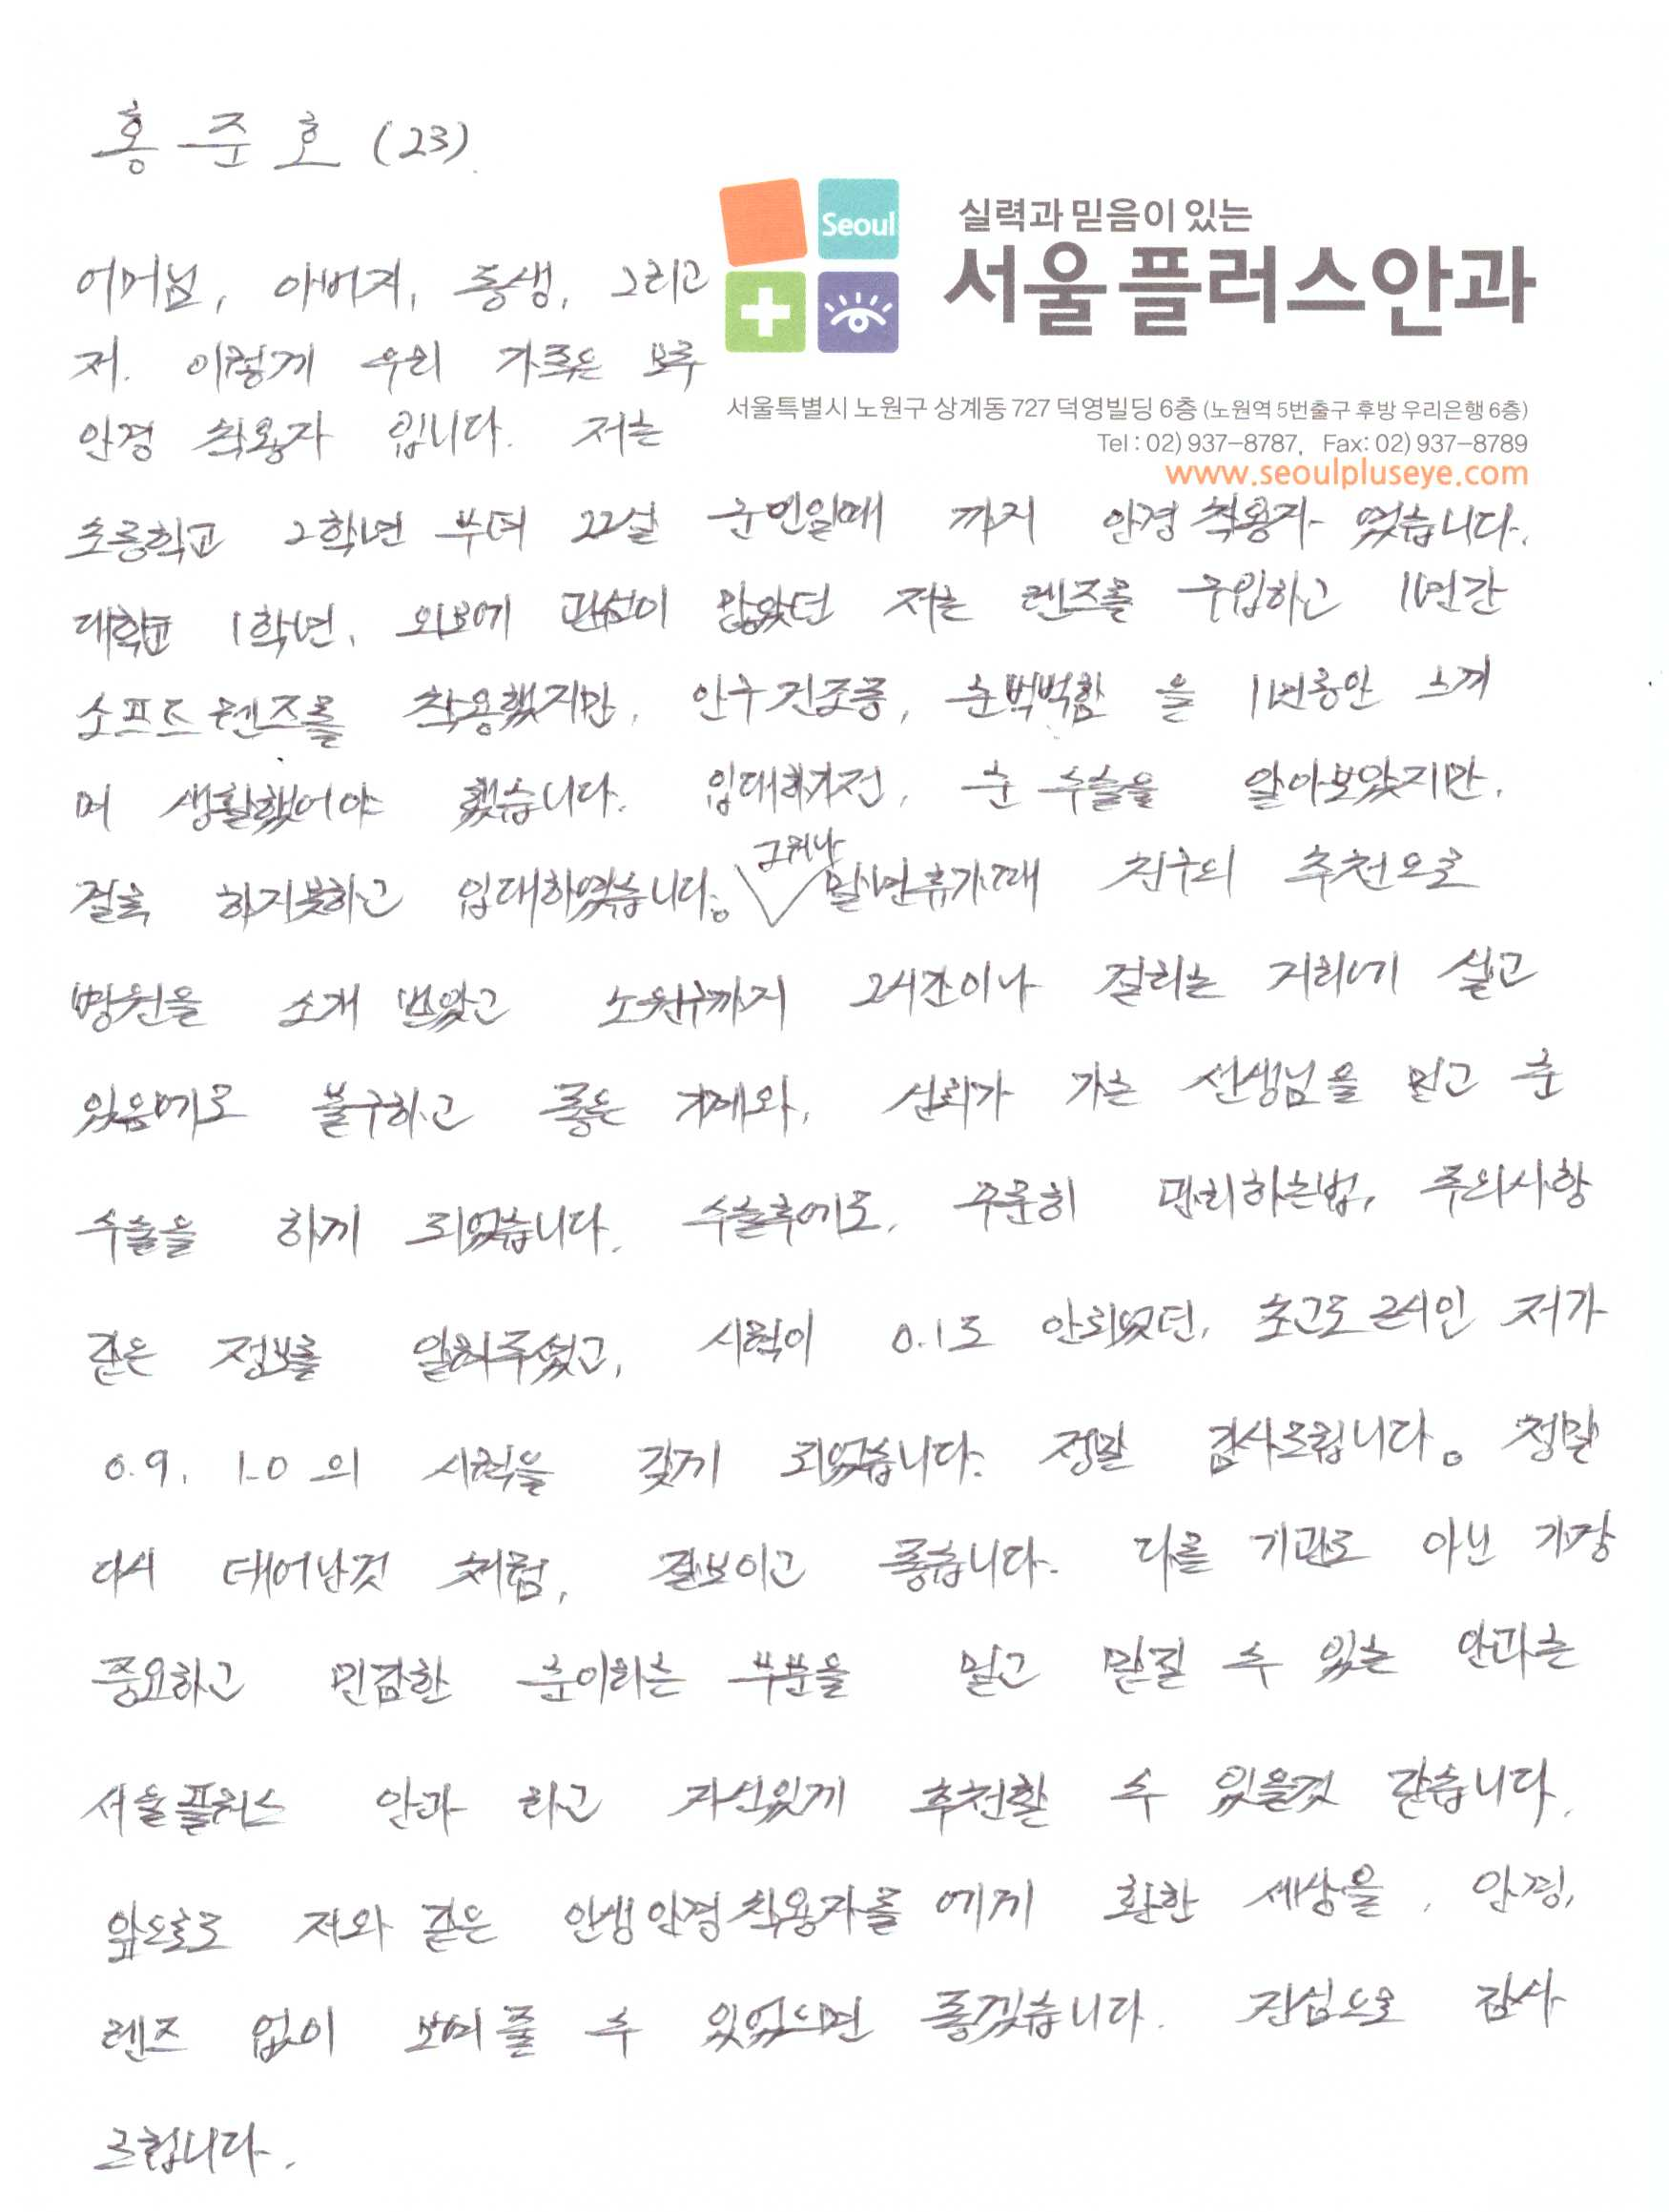 홍준호 (23).
Seoul
실력과 믿음이 있는
서울플러스안과
서울특별시 노원구 상계동 727 덕영빌딩 6층 (노원역 5번출구 후방 우리은행 6층)
Tel : 02) 937-8787, Fax: 02) 937-8789
www.seoulpluseye.com
어머님, 아버지, 동생, 그리고
저. 이렇게 우리 가족은 모두
안경 착용자 입니다. 저는
초등학교 2학년 부터 22살 군인일때 까지 안경 착용자 였습니다.
대학교 1학년, 외모에 관심이 많았던 저는 렌즈를 구입하고 1년간
소프트렌즈를 착용했지만, 안구건조증, 눈뻑뻑함 을 1년동안 느끼
며 생활했어야 했습니다. 입대하기전, 눈 수술을 알아보았지만,
결국 하지못하고 입대하였습니다. 그러나 말년휴가때 친구의 추천으로
병원을 소개 받았고 노원구까지 2시간이나 걸리는 거리에 살고
있음에도 불구하고 좋은 기계와, 신뢰가 가는 선생님을 믿고 눈
수술을 하게 되었습니다. 수술후에도, 꾸준히 관리하는법, 주의사항
같은 정보를 알려주셨고, 시력이 0.1도 안되었던, 초고도 근시인 저가
0.9, 1.0 의 시력을 갖게 되었습니다. 정말 감사드립니다. 정말
다시 태어난것 처럼, 잘보이고 좋습니다. 다른 기관도 아닌 가장
중요하고 민감한 눈이라는 부분을 믿고 맡길 수 있는 안과는
서울플러스 안과 라고 자신있게 추천할 수 있을것 같습니다.
앞으로도 저와 같은 인생 안경 착용자를 에게 환한 세상을, 안경,
렌즈 없이 보여줄 수 있었으면 좋겠습니다. 진심으로 감사
드립니다.